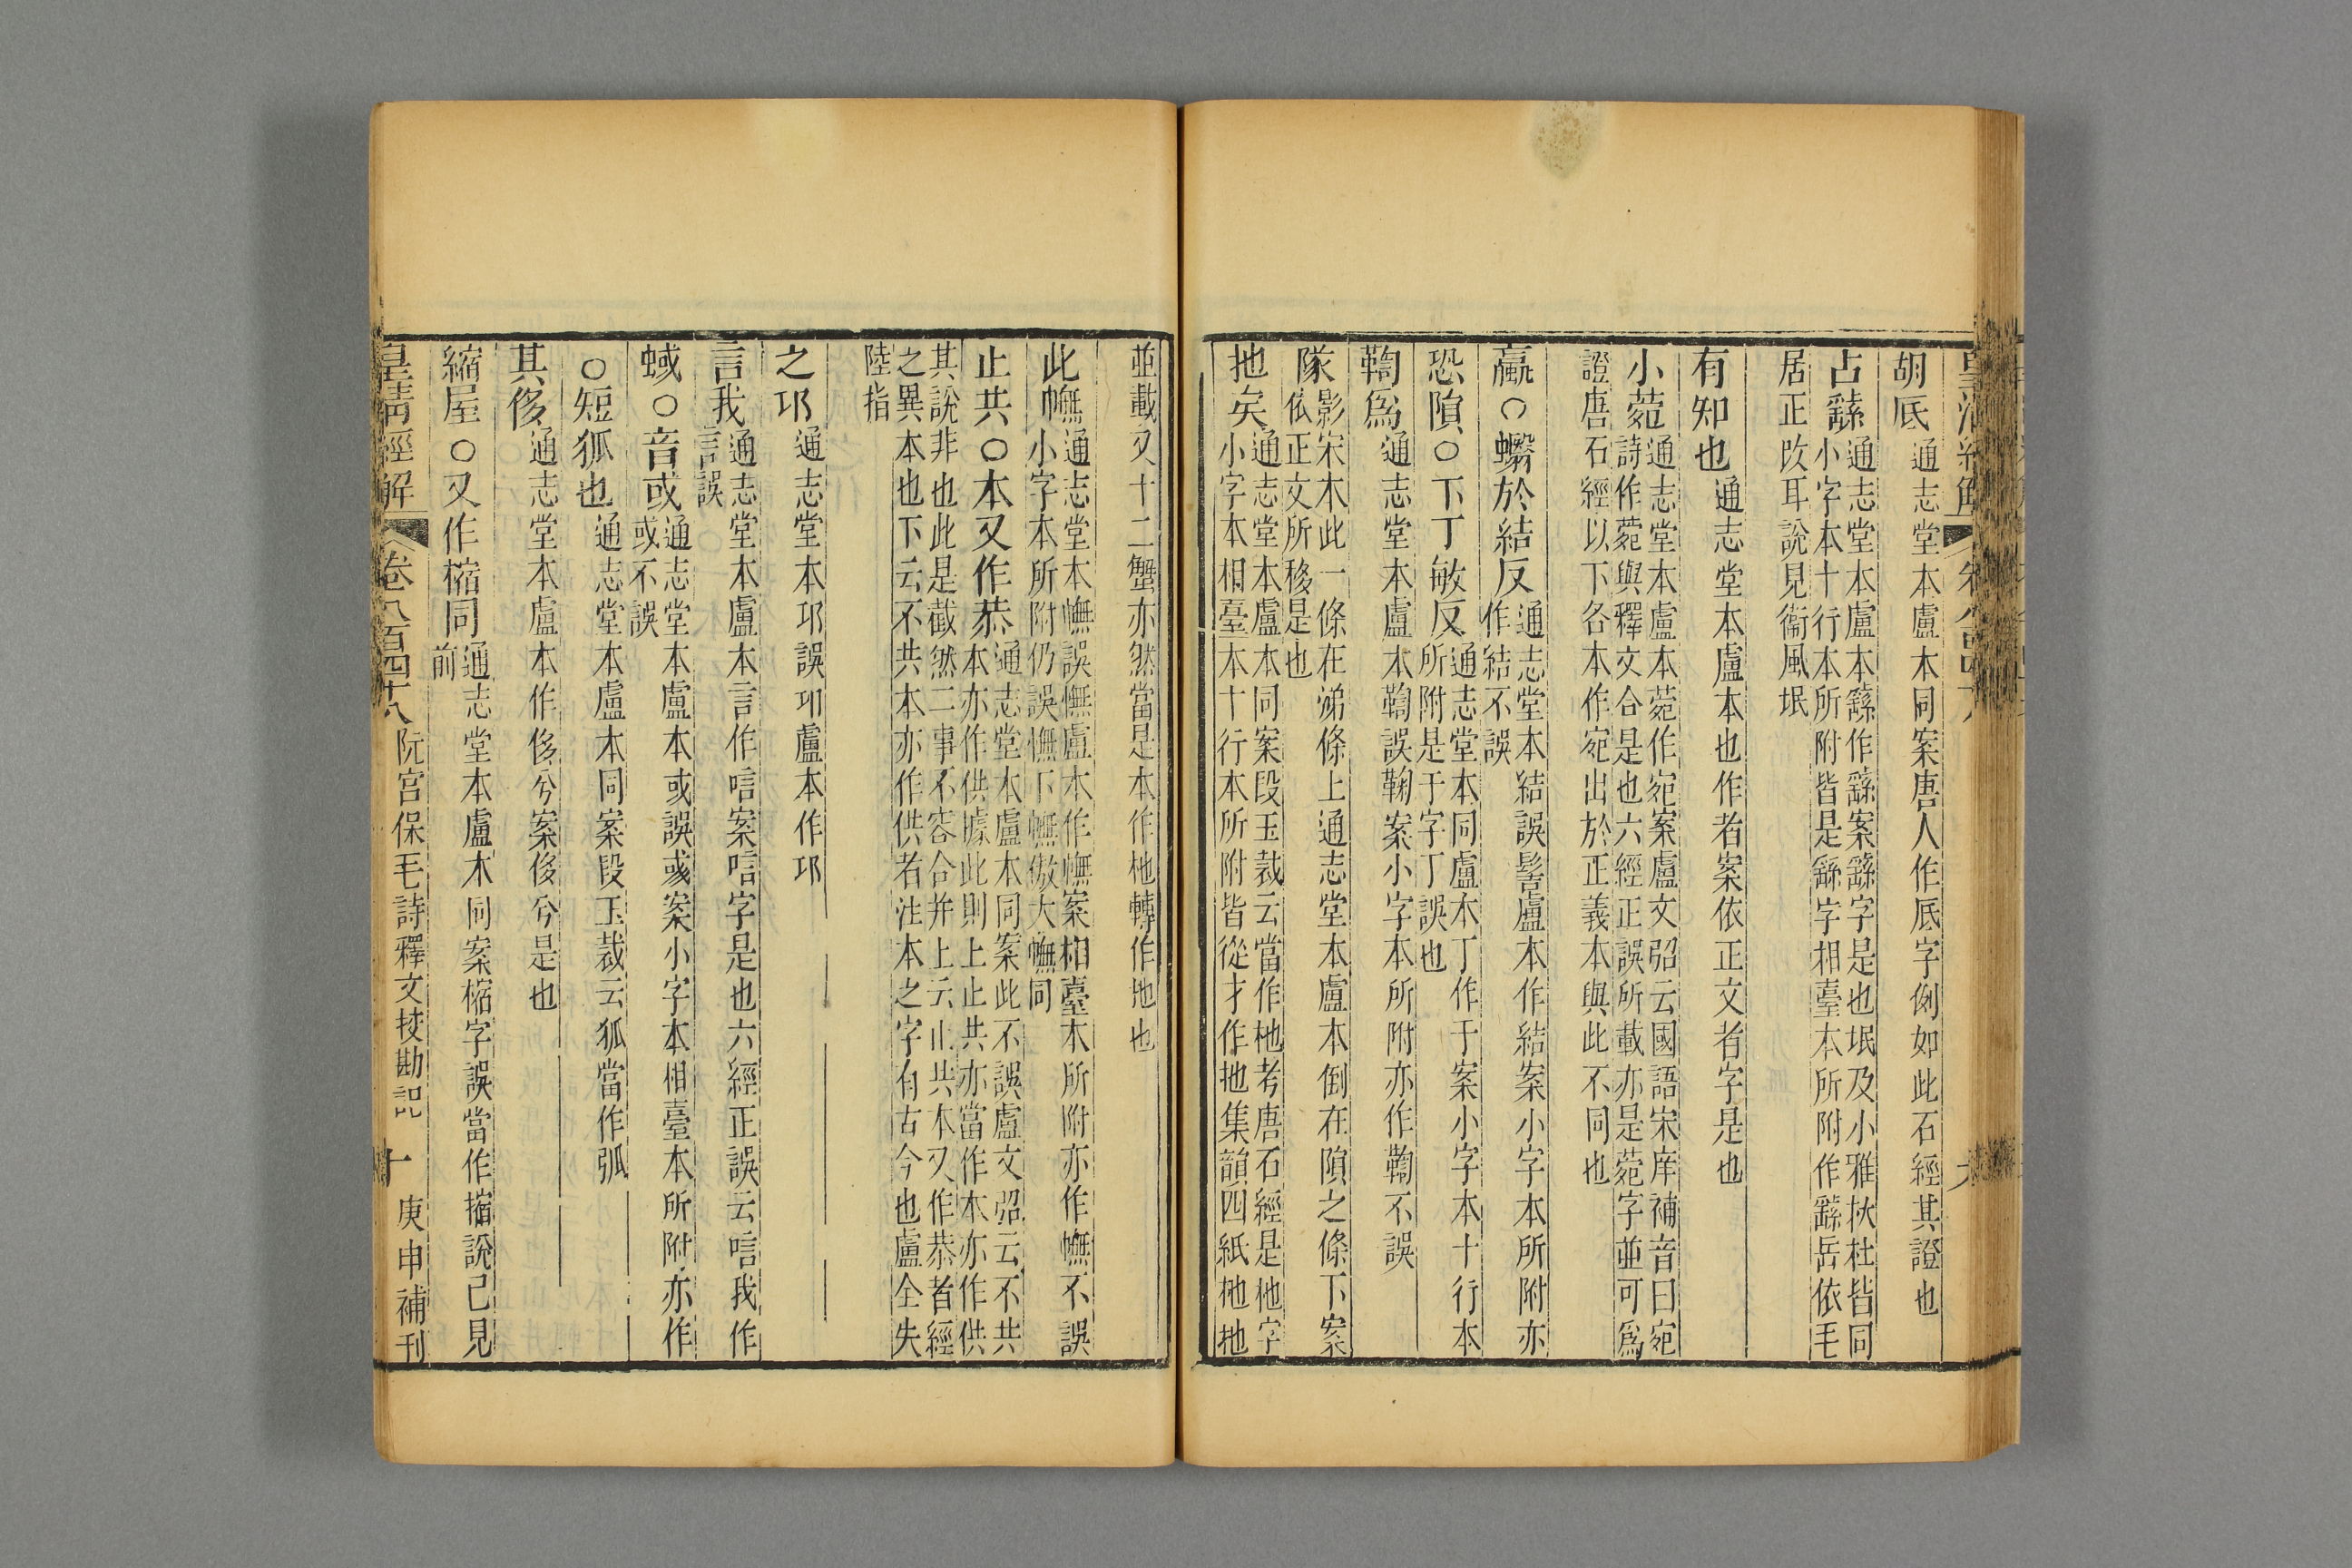 胡底通志堂本盧本同案唐人作底字例如此石經其證也
占繇通志堂本盧本繇作繇案繇字是也垊及小雅杕杜皆同
小字本十行本所附皆是繇字相臺本所附作繇岳依毛
居正改耳說見衞風垊
有知也通志堂本盧本也作者案依正文者字是也
小菀通志堂本盧本菀作宛案盧文弨云國語宋庠補音曰宛
詩作菀與釋文合是也六經正誤所載亦是菀字並可爲
證唐石經以下各本作宛出於正義本與此不同也
蠃○蠮於結反通志堂本結誤髻盧本作結案小字本所附亦
作結不誤
恐隕○下丁敏反通志堂本同盧本丁作于案小字本十行本
所附是于字丁誤也
鞫爲通志堂本盧本鞫誤鞠案小字本所附亦作鞫不誤
隊影宋本此一條在涕條上通志堂本盧本倒在隕之條下案
依正文所移是也
扡矣通志堂本盧本同案段玉裁云當作杝考唐石經是杝字
小字本相臺本十行本所附皆從才作扡集韻四紙杝扡
並載又十二蟹亦然當是本作杝轉作扡也
此幠通志堂本幠誤憮盧本作幠案相臺本所附亦作幠不誤
小字本所附仍誤憮下幠傲大幠同
止共○本又作恭通志堂本盧本同案此不誤盧文弨云不共
本亦作供據此則上止共亦當作本亦作供
其說非也此是截然二事不容合并上云止共本又作恭者經
之異本也下云不共本亦作供者注本之字有古今也盧全失
陸指
之邛通志堂本邛誤卭盧本作邛
言我通志堂本盧本言作唁案唁字是也六經正誤云唁我作
言誤
蜮○音或通志堂本盧本或誤彧案小字本相臺本所附亦作
或不誤
○短狐也通志堂本盧本同案段玉裁云狐當作弧
其侈通志堂本盧本作侈兮案侈兮是也
縮屋○又作樎同通志堂本盧本同案樎字誤當作摍說已見
前
皇清經解 卷八百四十八 阮宮保毛詩釋文挍勘記 十 庚申補刊